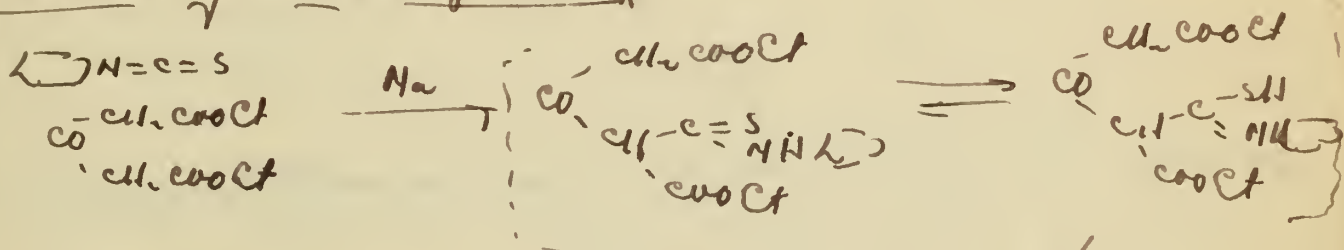 N=C=S
CO CH₂ COOEt
CH₂ COOEt
Na
CO CH₂ COOEt
CH - C = S
NH
COOEt
CO CH₂ COOEt
CH - C - SH
= NH
COOEt